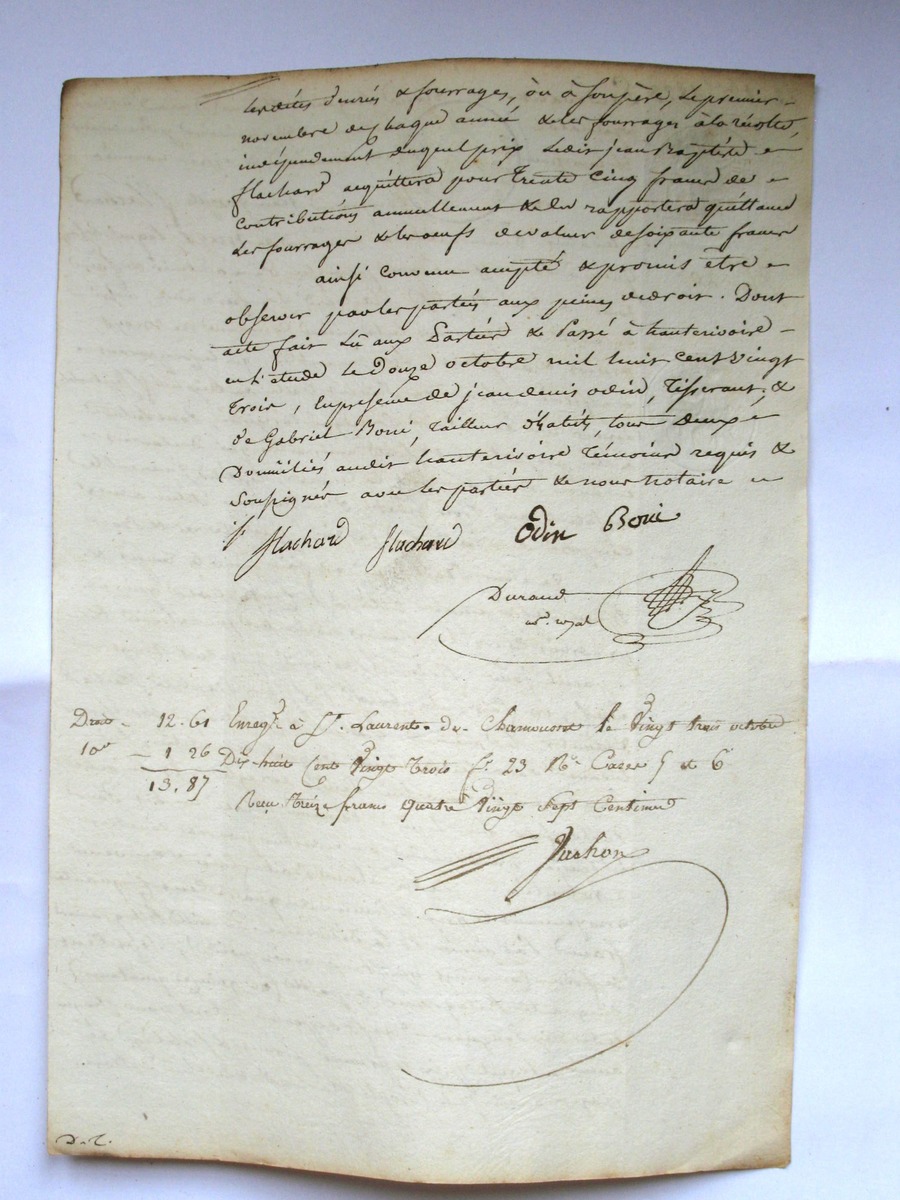 lesdites denrées & fourrages, ou à son père, le premier
novembre de chaque année & les fourrages à la récolte,
indépendamment duquel prix Ledit jean Baptiste
flachard acquittera pour Trente Cinq francs de
Contributions annuellement & de lui rapportera quittance
Les fourrages & les oeufs de valeur de soixante francs
ainsi convenu accepté & promis être
observer par les parties aux peines de droit. Dont
acte fait Lû aux Parties & Passé à hauterivoire
en l'étude le Douze octobre mil huit cent vingt
Trois, En presence de jean denis odin, Tisserant, &
de Gabriel Boni, Tailleur d'habits, tous Deux
Domiciliés audit hauterivoire Témoins requis &
Soussignés avec les parties & nous notaire
flachard flachard Odin Boni
Durand
Droits 12.61 Enregt. à St. Laurent de Chamousset le Vingt trois octobre
10e 1 26 Dix-huit Cent Vingt Trois f. 23 Rº Cases 5 et 6
13.87
Reçu Treize francs quatre Vingt Sept Centimes
D.T.